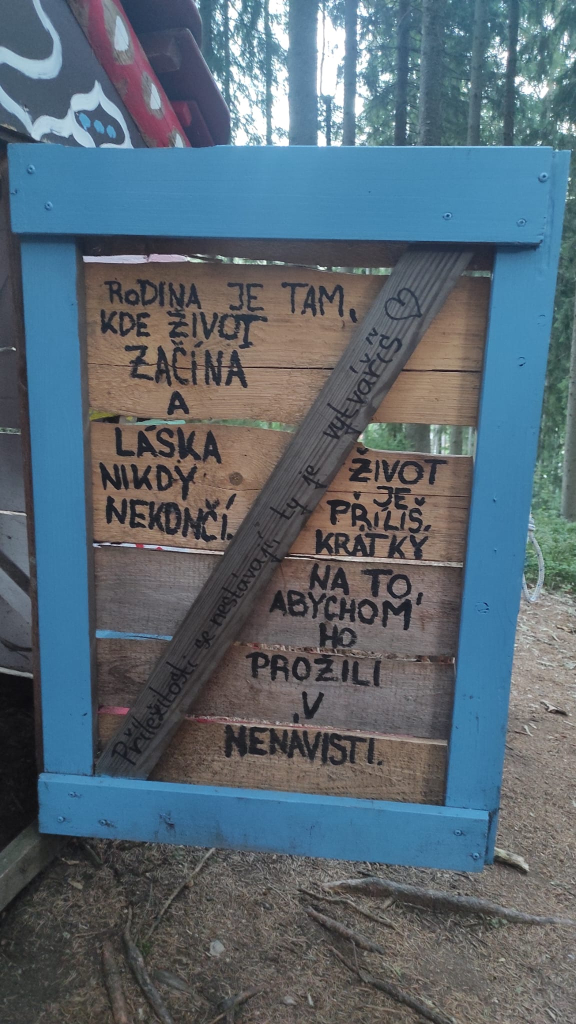 RODINA JE TAM,
KDE ŽIVOT
ZAČÍNA
A
LÁSKA
NIKDY
NEKONČÍ.
Příležitosti se nestávají, ty je vytváříš ♡
ŽIVOT
JE
PŘÍLIŠ
KRÁTKÝ
NA TO,
ABYCHOM
HO
PROŽILI
V
NENÁVISTI.